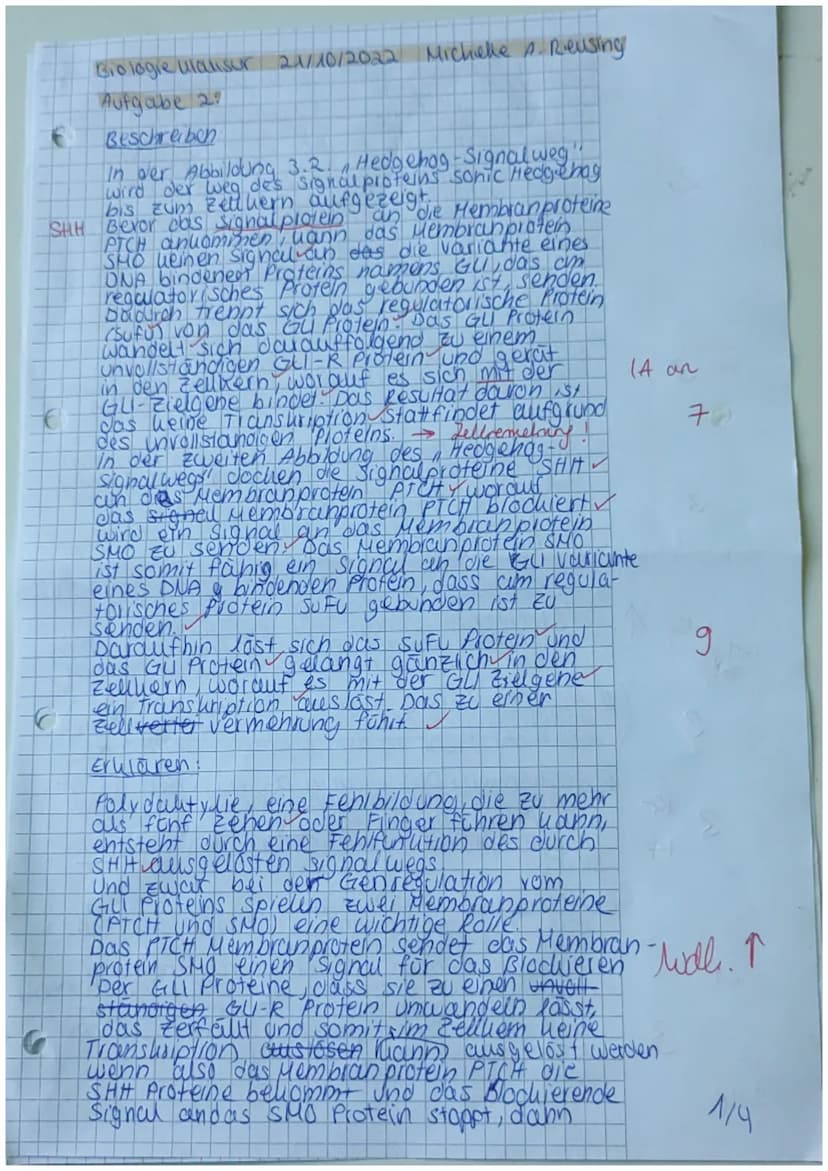 Biologie Klausur 21/10/2022 Michelle A. Reusing
Aufgabe 2:
Beschreiben
In der Abbildung 3.2 "Hedgehog-Signalweg"
wird der Weg des Signalproteins Sonic Hedgehog
bis zum Zellkern aufgezeigt.
SHH Bevor das Signalprotein an die Membranproteine
PTCH ankommen, kann das Membranprotein
SMO keinen Signal an das die Variante eines
DNA bindener Proteins namens GLI, das am
regulatorisches Protein gebunden ist, senden.
Dadurch trennt sich das regulatorische Protein
(SuFu) von das GLI Protein. Das GLI Protein
wandelt sich darauffolgend zu einem
unvollständigen GLI-R Protein und gerät
in den Zellkern, worauf es sich mit der
GLI-Zielgene bindet. Das Resultat davon ist
das keine Transkription stattfindet aufgrund
des unvollständigen Proteins. → Zellvermehrung!
(A an
7
In der zweiten Abbildung des "Hedgehog-
Signalwegs" docken die Signalproteine SHH
an das Membranprotein PTCH, worauf
das signal Membranprotein PTCH blockiert
wird ein Signal an das Membranprotein
SMO zu senden. Das Membranprotein SMO
ist somit fähig ein Signal an die GLI Variante
eines DNA bindenden Protein, dass am regula-
torisches Protein SuFu gebunden ist zu
senden.
Daraufhin löst sich das SuFu Protein und
das GLI Protein gelangt gänzlich in den
Zellkern, worauf es mit der GLI Zielgene
ein Transkription auslöst. Das zu einer
Zell Vermehrung führt
9
Erklären:
Polydaktylie, eine Fehlbildung, die zu mehr
als fünf Zehen oder Finger führen kann,
entsteht durch eine Fehlfunktion des durch
SHH ausgelösten Signalwegs.
Und zwar bei der Genregulation vom
GLI Proteins spielen zwei Membranproteine
(PTCH und SMO) eine wichtige Rolle.
Das PTCH Membranprotein sendet das Membran-
protein SMO einen Signal für das Blockieren
Der GLI Proteine, dass sie zu einen unvoll-
ständigen GLI-R Protein umwandeln lässt,
das zerfällt und somit im Zellkern keine
Transkription auslösen kann ausgelöst werden
wenn also das Membranprotein PTCH die
SHH Proteine bekommt und das Blockierende
Signal an das SMO Protein stoppt, dann
Wdh. ↑
1/4